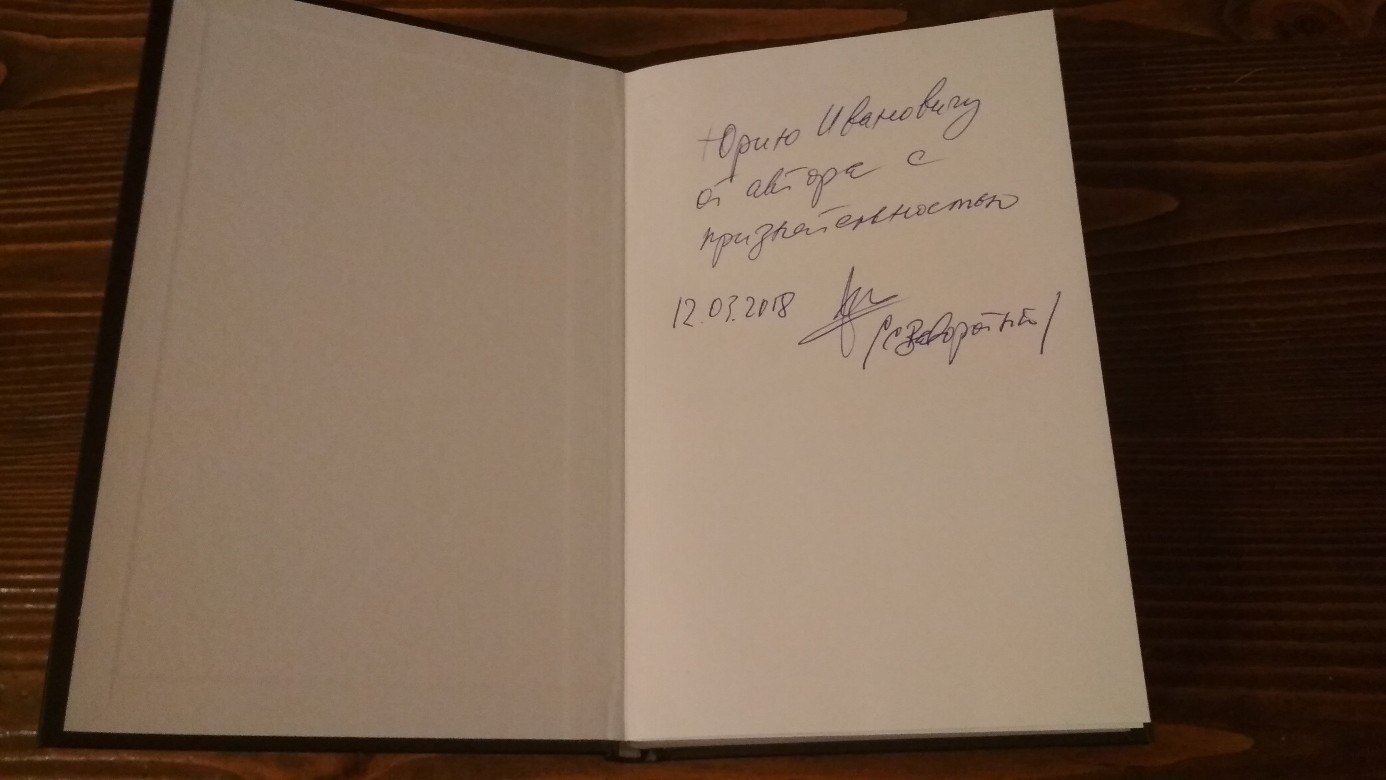 Юрию Ивановичу
от автора с
признательностью
12.03.2018